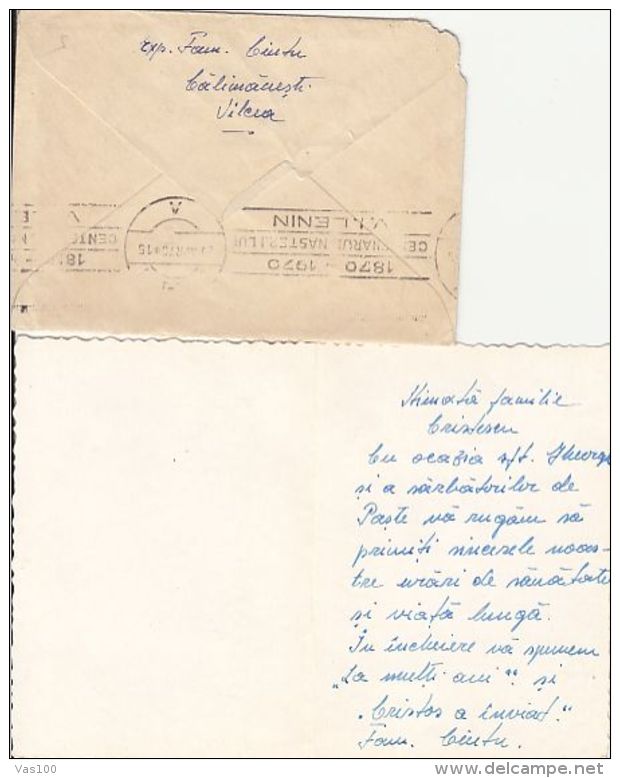 Exp. Fam. Cintu
Călimănești
Vîlcea
A
V.I. LENIN
CENTENARUL NAȘTERII LUI
1870 - 1970
Stimată familie
Cristescu
Cu ocazia sft. Gheorg
și a sărbătorilor de
Paște vă rugăm să
primiți sincerele noas-
tre urări de sănătate
și viață lungă.
În încheiere vă spunem
„La mulți ani” și
„Cristos a înviat.”
Fam. Cintu.
Vas100
© www.delcampe.net